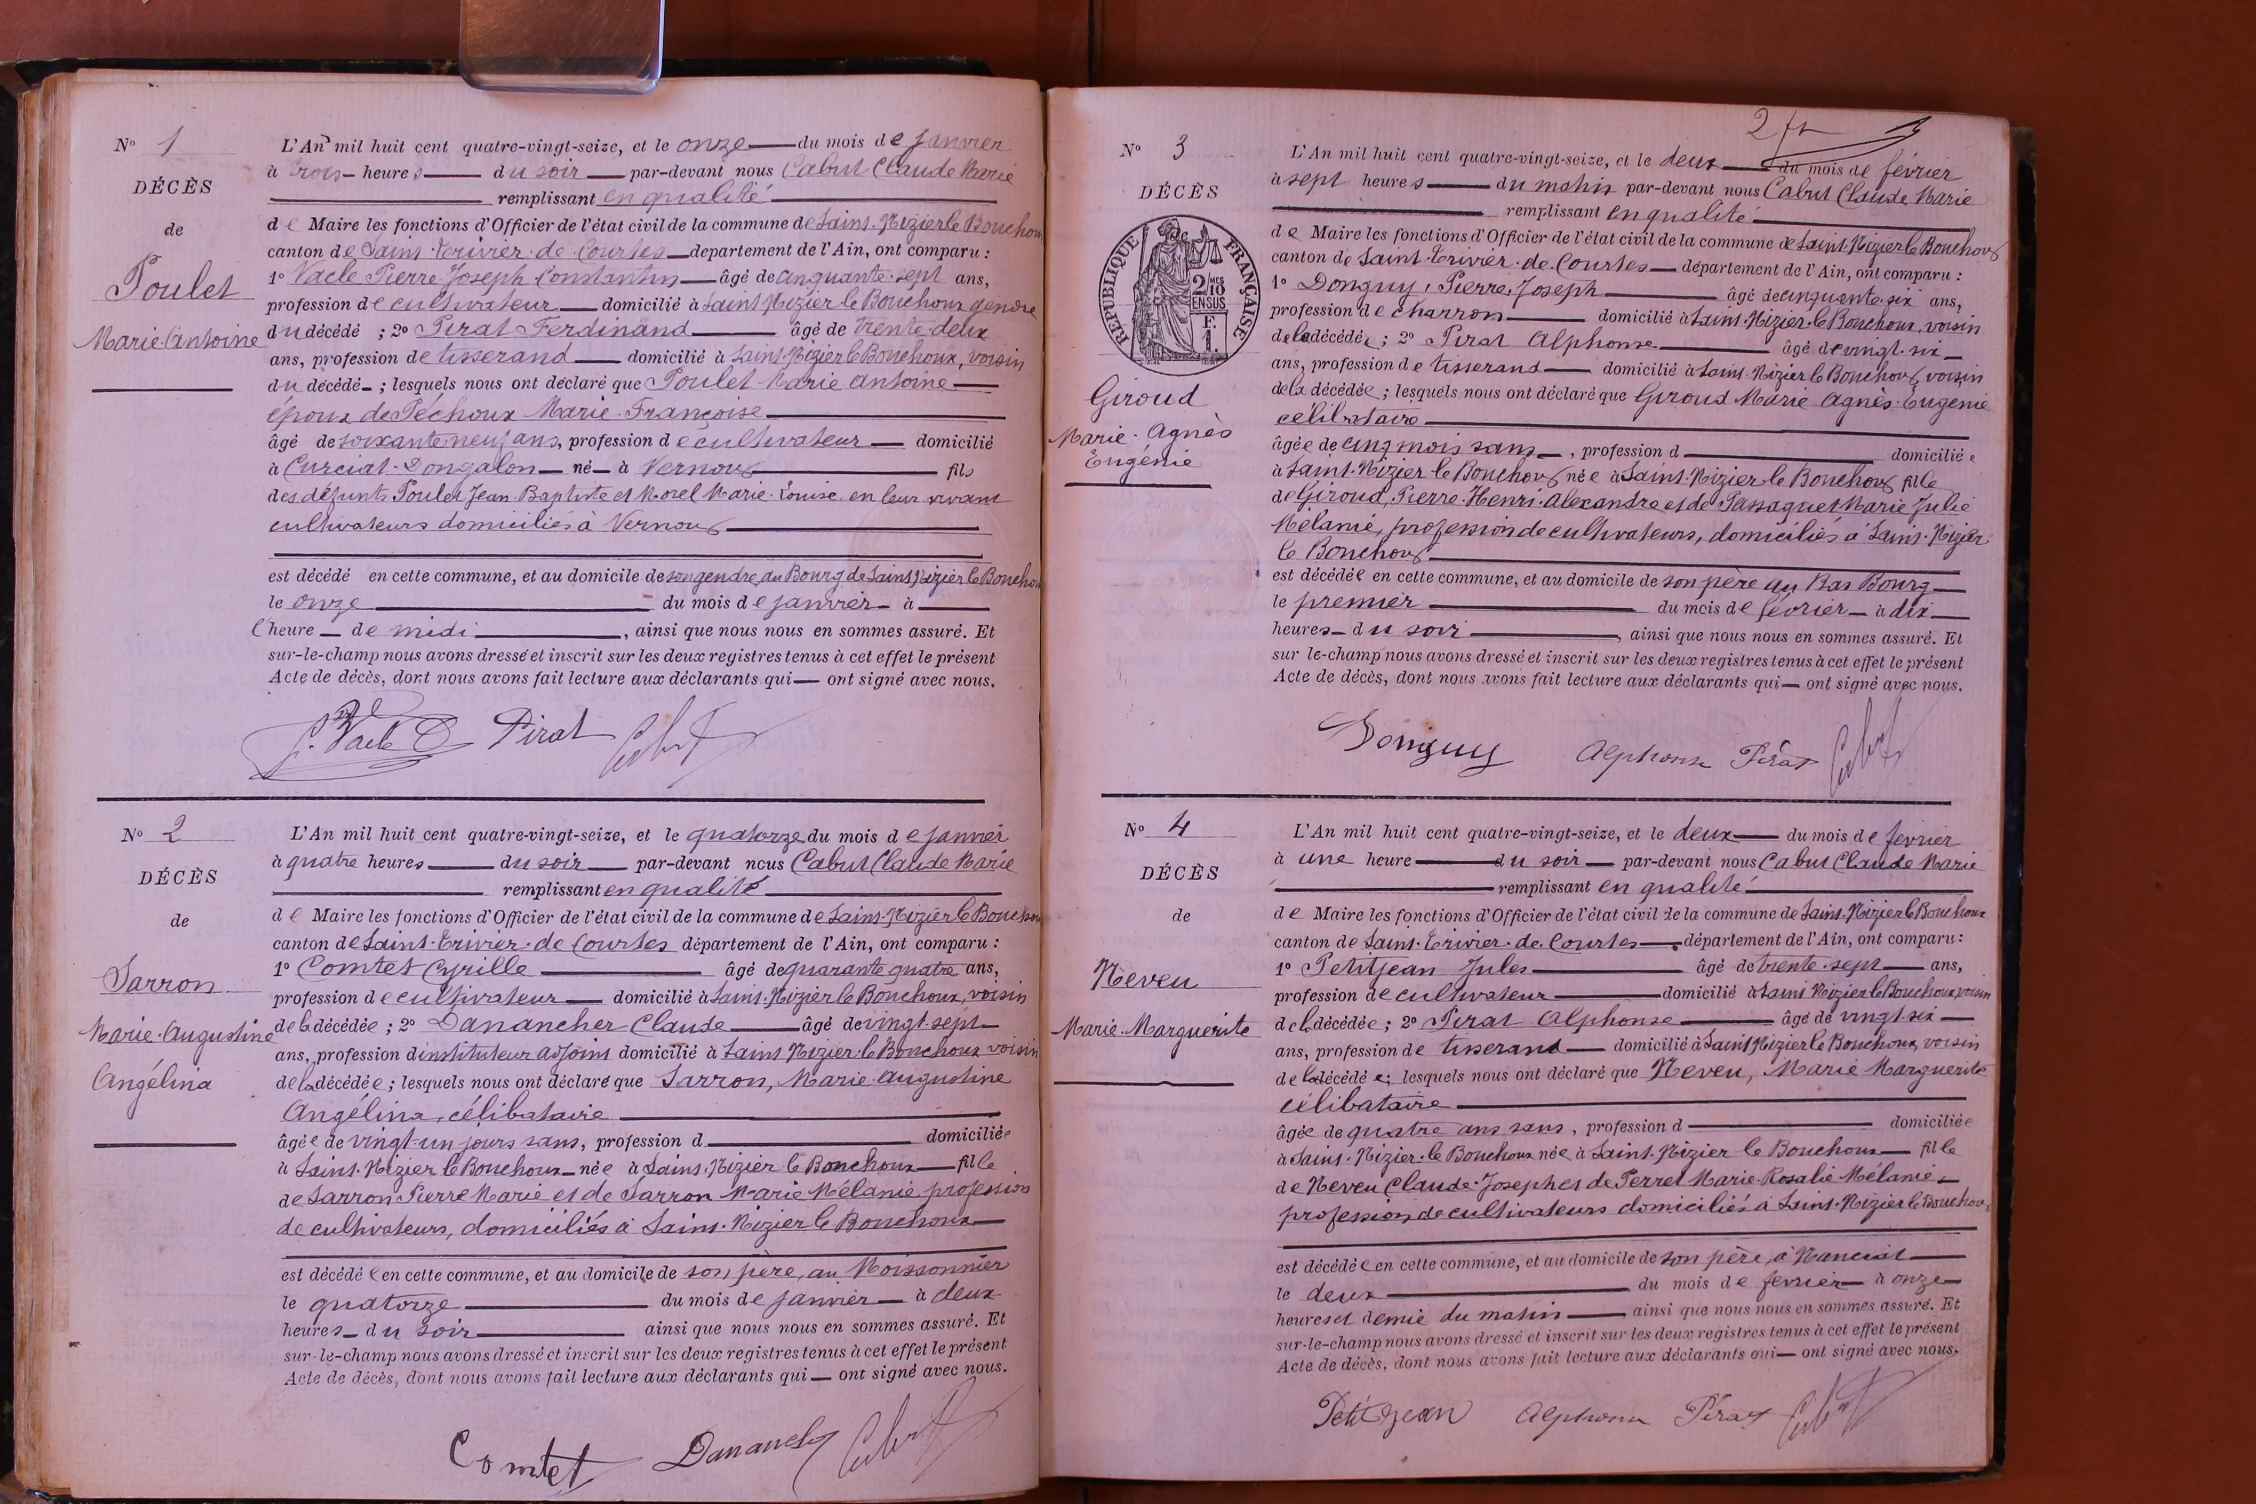 N° 1
DÉCÈS
de
Poulet
Marie Antoine
L'An mil huit cent quatre-vingt-seize, et le onze du mois de janvier
à trois heures du soir par-devant nous Cabut Claude Marie
remplissant en qualité
de Maire les fonctions d'Officier de l'état civil de la commune de Saint-Nizier le Bouchoux
canton de Saint-Trivier-de-Courtes departement de l'Ain, ont comparu :
1° Vacle Pierre Joseph Constantin âgé de cinquante-sept ans,
profession de cultivateur domicilié à Saint Nizier le Bouchoux gendre
du décédé ; 2° Pirat Ferdinand âgé de trente-deux
ans, profession de tisserand domicilié à Saint-Nizier le Bouchoux, voisin
du décédé ; lesquels nous ont déclaré que Poulet Marie Antoine
époux de Péchoux Marie-Françoise
âgé de soixante neuf ans, profession de cultivateur domicilié
à Curciat-Dongalon né à Vernoux fils
des défunts Poulet Jean-Baptiste et Morel Marie-Louise en leur vivant
cultivateurs domiciliés à Vernoux
est décédé en cette commune, et au domicile de son gendre, au Bourg de Saint Nizier le Bouchoux
le onze du mois de janvier à
l'heure de midi, ainsi que nous nous en sommes assuré. Et
sur-le-champ nous avons dressé et inscrit sur les deux registres tenus à cet effet le présent
Acte de décès, dont nous avons fait lecture aux déclarants qui ont signé avec nous.
Vacle Pirat Cabut
N° 2
DÉCÈS
de
Sarron
Marie-Augustine
Angélina
L'An mil huit cent quatre-vingt-seize, et le quatorze du mois de janvier
à quatre heures du soir par-devant nous Cabut Claude Marie
remplissant en qualité
de Maire les fonctions d'Officier de l'état civil de la commune de Saint-Nizier le Bouchoux
canton de Saint-Trivier-de-Courtes département de l'Ain, ont comparu :
1° Comtet Cyrille âgé de quarante quatre ans,
profession de cultivateur domicilié à Saint-Nizier le Bouchoux, voisin
de la décédée ; 2° Danancher Claude âgé de vingt-sept
ans, profession d'instituteur adjoint domicilié à Saint Nizier-le-Bouchoux voisin
de la décédée ; lesquels nous ont déclaré que Sarron, Marie-Augustine
Angélina, célibataire
âgée de vingt-un jours sans, profession d domiciliée
à Saint-Nizier le Bouchoux née à Saint-Nizier le Bouchoux fille
de Sarron Pierre Marie et de Sarron Marie Mélanie profession
de cultivateurs, domiciliés à Saint-Nizier le Bouchoux
est décédée en cette commune, et au domicile de son père, au Moissonnier
le quatorze du mois de janvier à deux
heures du soir ainsi que nous nous en sommes assuré. Et
sur-le-champ nous avons dressé et inscrit sur les deux registres tenus à cet effet le présent
Acte de décès, dont nous avons fait lecture aux déclarants qui ont signé avec nous.
Comtet Danancher Cabut
N° 3
DÉCÈS
RÉPUBLIQUE FRANÇAISE
2/10 MES
EN SUS
F.
1.
Giroud
Marie-Agnès
Eugénie
L'An mil huit cent quatre-vingt-seize, et le deux du mois de février
à sept heures du matin par-devant nous Cabut Claude Marie
remplissant en qualité
de Maire les fonctions d'Officier de l'état civil de la commune de Saint-Nizier le Bouchoux
canton de Saint-Trivier-de-Courtes département de l'Ain, ont comparu :
1° Donguy, Pierre, Joseph âgé de cinquante-six ans,
profession de charron domicilié à Saint-Nizier-le Bouchoux, voisin
de la décédée ; 2° Pirat Alphonse âgé de vingt-six
ans, profession de tisserand domicilié à Saint-Nizier le Bouchoux, voisin
de la décédée ; lesquels nous ont déclaré que Giroud Marie Agnès-Eugénie
célibataire
âgée de cinq mois sans, profession d domiciliée
à Saint-Nizier-le Bouchoux née à Saint-Nizier le Bouchoux fille
de Giroud, Pierre-Henri-Alexandre et de Passaquet Marie Julie
Mélanie, profession de cultivateurs, domiciliés à Saint-Nizier
le Bouchoux
est décédée en cette commune, et au domicile de son père au Bas Bourg
le premier du mois de février à dix
heures du soir, ainsi que nous nous en sommes assuré. Et
sur le-champ nous avons dressé et inscrit sur les deux registres tenus à cet effet le présent
Acte de décès, dont nous avons fait lecture aux déclarants qui ont signé avec nous.
Donguy Alphonse Pirat Cabut
N° 4
DÉCÈS
de
Neveu
Marie-Marguerite
L'An mil huit cent quatre-vingt-seize, et le deux du mois de février
à une heure du soir par-devant nous Cabut Claude Marie
remplissant en qualité
de Maire les fonctions d'Officier de l'état civil de la commune de Saint-Nizier le Bouchoux
canton de Saint-Trivier-de-Courtes département de l'Ain, ont comparu :
1° Petitjean Jules âgé de trente-sept ans,
profession de cultivateur domicilié à Saint Nizier le Bouchoux, voisin
de la décédée ; 2° Pirat Alphonse âgé de vingt-six
ans, profession de tisserand domicilié à Saint Nizier le Bouchoux, voisin
de la décédée ; lesquels nous ont déclaré que Neveu, Marie Marguerite
célibataire
âgée de quatre ans sans, profession d domiciliée
à Saint-Nizier-le Bouchoux née à Saint-Nizier le Bouchoux fille
de Neveu Claude-Joseph et de Perret Marie-Rosalie Mélanie
profession de cultivateurs domiciliés à Saint-Nizier le Bouchoux
est décédée en cette commune, et au domicile de son père, à Nanciat
le deux du mois de février à onze
heures et demie du matin ainsi que nous nous en sommes assuré. Et
sur-le-champ nous avons dressé et inscrit sur les deux registres tenus à cet effet le présent
Acte de décès, dont nous avons fait lecture aux déclarants qui ont signé avec nous.
Petitjean Alphonse Pirat Cabut